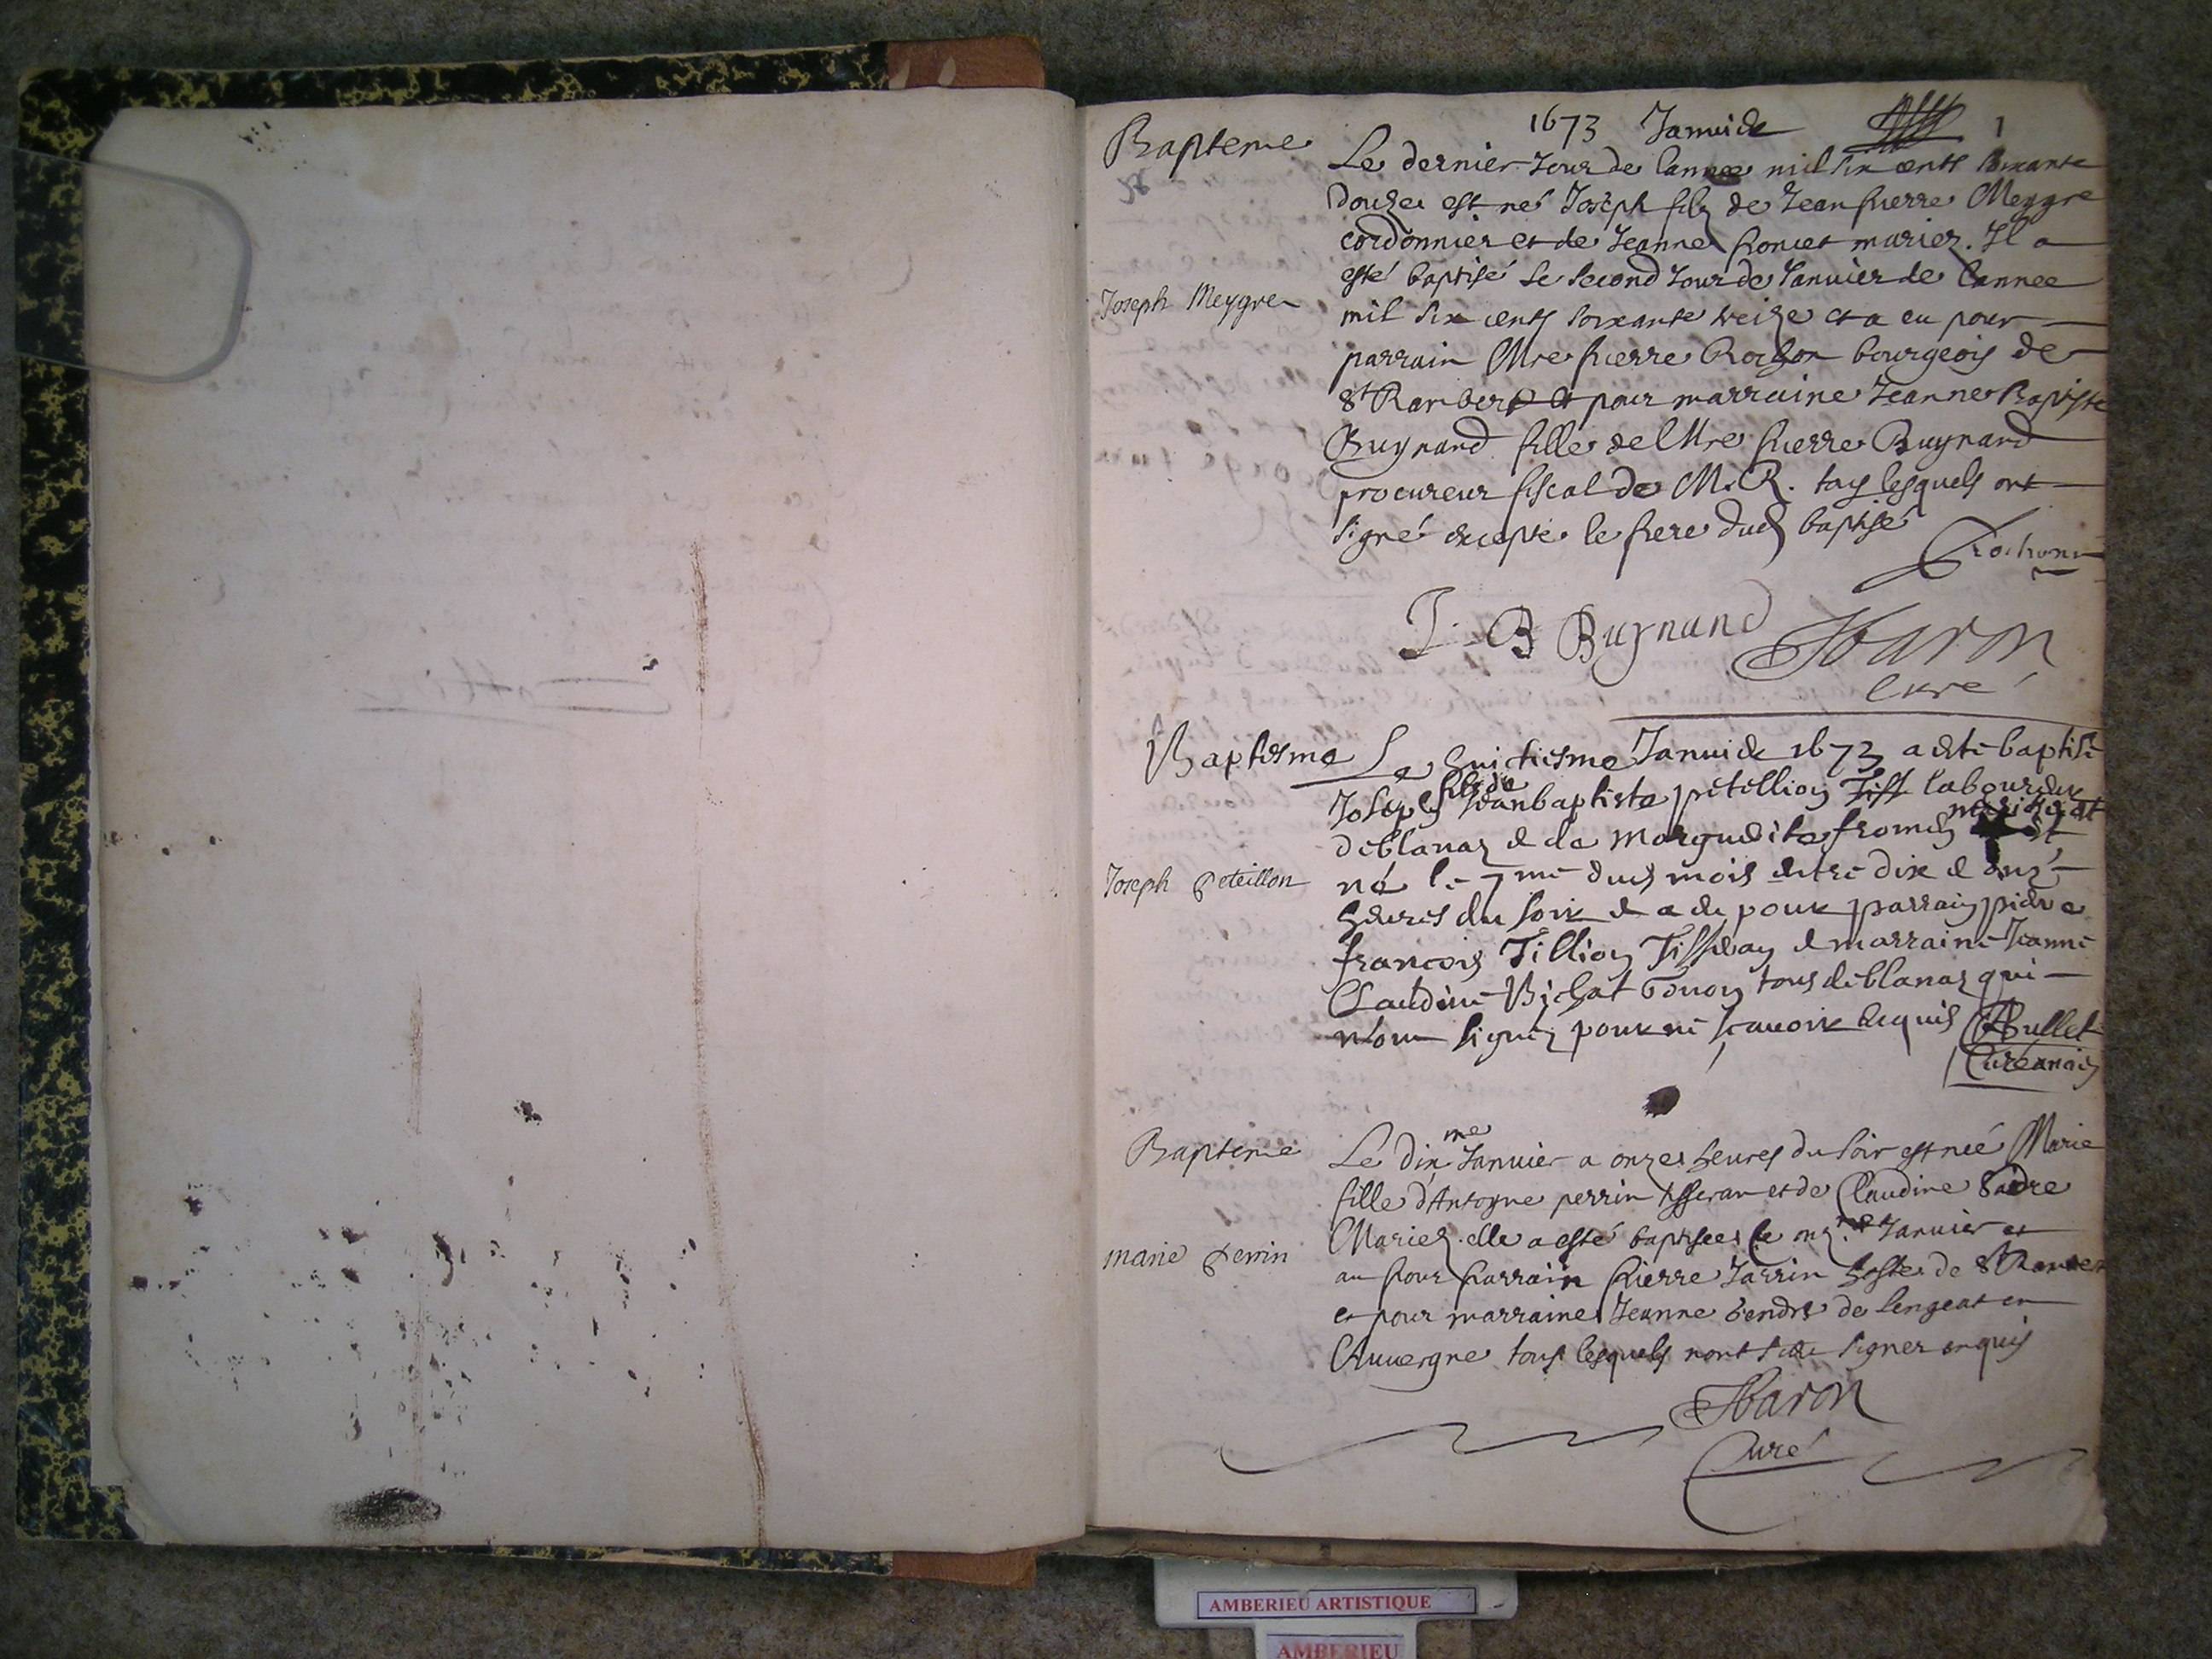 1673 Januier 1
Bapteme
Le dernier Jour de lannee mil six cents soixante
douze est né Joseph filz de Jean pierre Meygre
cordonnier et de Jeanne poncet mariez. Il a
esté baptisé le second Jour de Januier de lannee
Joseph Meygre
mil six cents soixante treize et a eu pour
parrain Mre pierre Rochon bourgeois de
St Rambert et pour marraine Jeanne Baptiste
Buynand fille de Mre pierre Buynand
procureur fiscal de M.R. tous lesquels ont
signé excepté le pere dud baptisé
Rochon
J. B Buynand Baron
Curé
Baptesme Le huictiesme Januier 1673 a esté baptisé
Joseph fils de Jeanbaptiste petellion laboureur
de blanaz & de marguerite mariez et
Joseph peteillon
né le 7me dud mois entre dix & onze
heures du soir & a eu pour parrain pierre
francois Tillion Tisseran & marraine Jeanne
Claudine Bichat tous de blanaz qui
nont signez pour ne scauoir enquis Bullet
Curé
Bapteme
Le dixme Januier a onzes heures du soir est née Marie
fille d'Antoyne perrin tisseran et de Claudine
Mariez. elle a esté baptisee le onze Januier et
marie perrin
au pour parrain pierre Jarrin hoste de St Rambert
et pour marraine Jeanne de en
Auuergne tous lesquels nont sceu signer enquis
Baron
Curé
AMBERIEU ARTISTIQUE
AMBERIEU